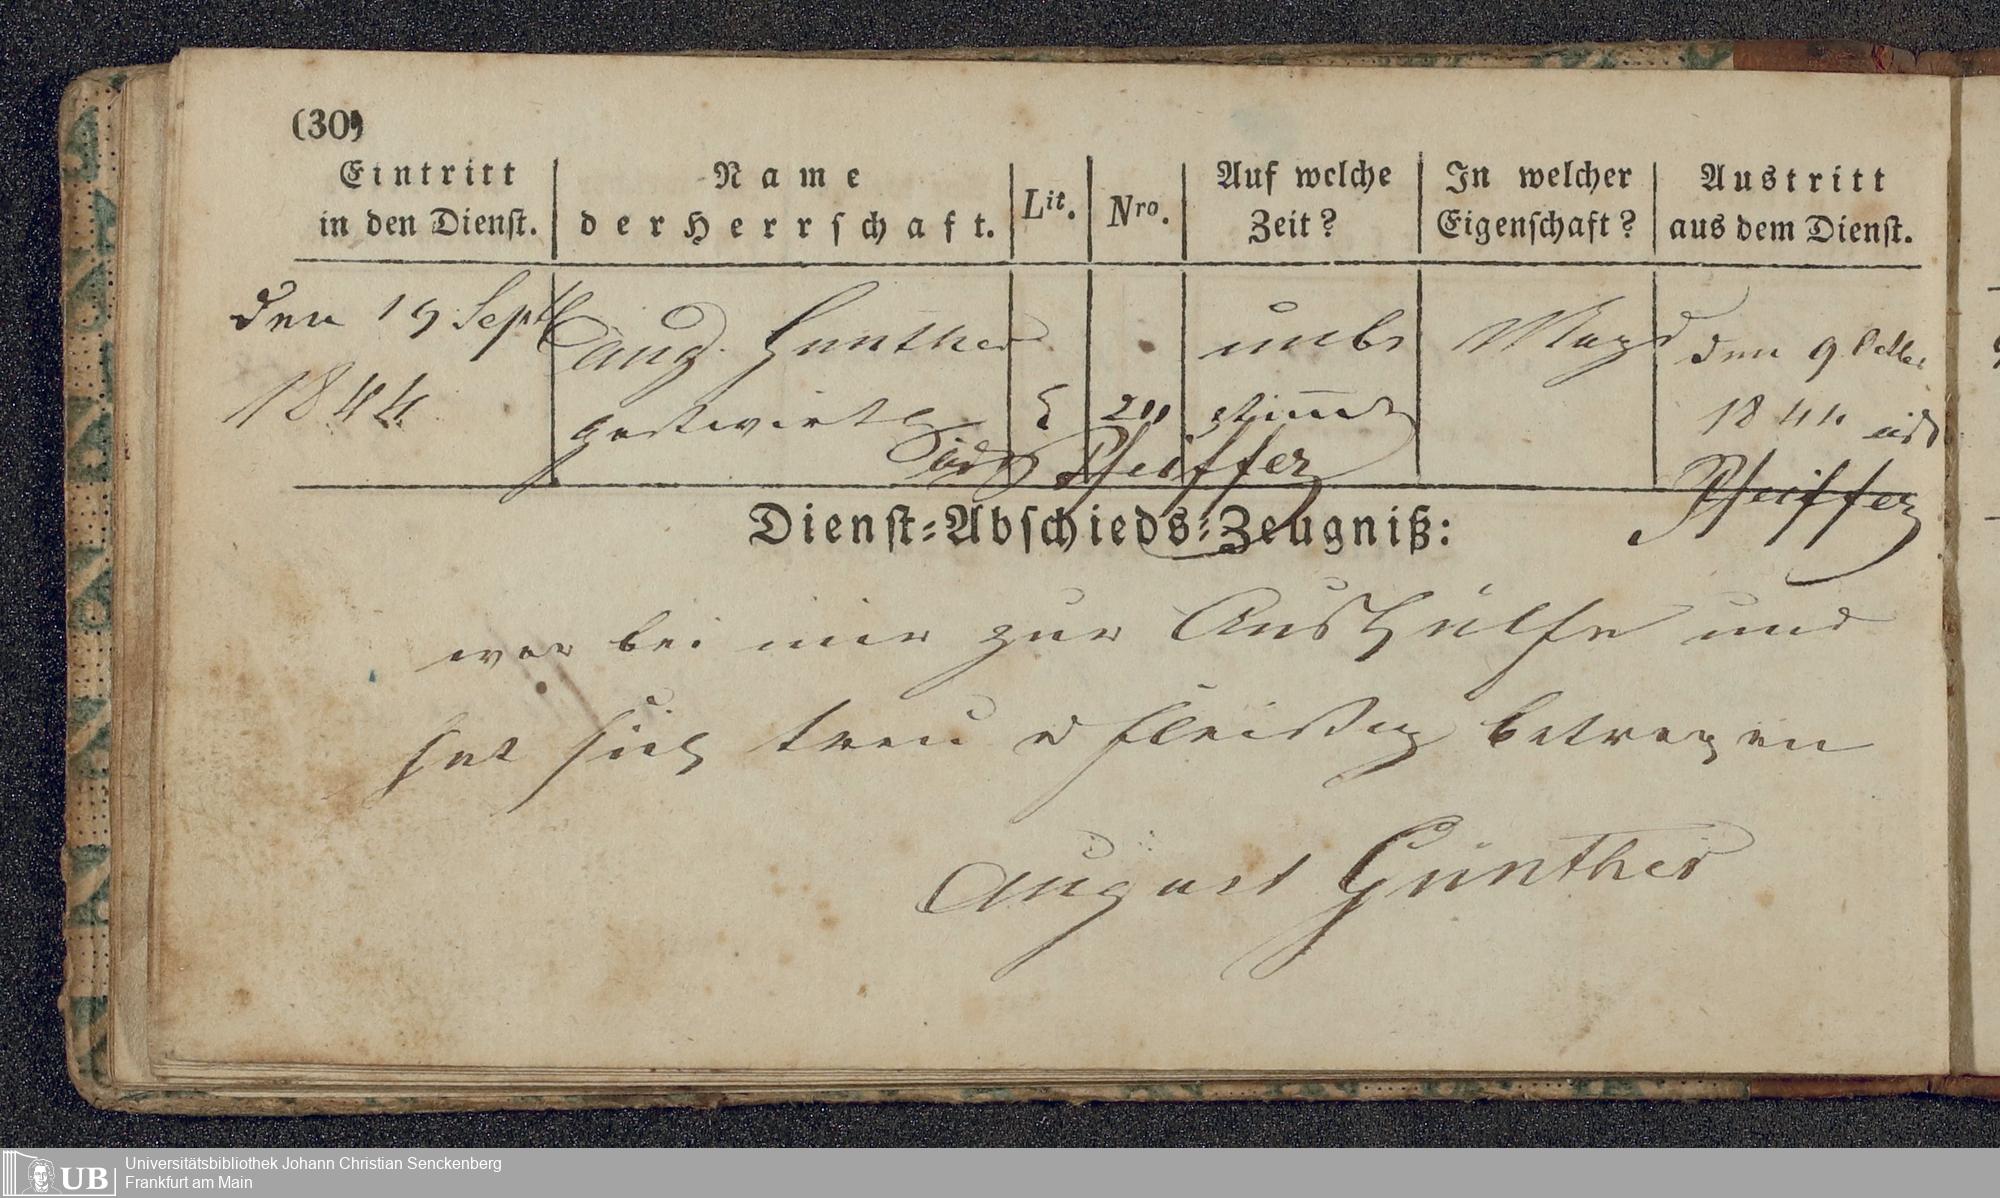 (30)
Eintritt
in den Dienst.
Name
der Herrschaft.
Lit.
Nro.
Auf welche
Zeit?
In welcher
Eigenschaft?
Austritt
aus dem Dienst.
den 19 Sept
1844
Aug. Günther
gastwirth
unbe
stimmt
Magd
den 9 Octbr
1844
Pfeiffer
Pfeiffer
Dienst-Abschieds-Zeugniß:
war bei mir zur Aushülfe und
hat sich treu u fleißig betragen
August Günther
UB
Universitätsbibliothek Johann Christian Senckenberg
Frankfurt am Main